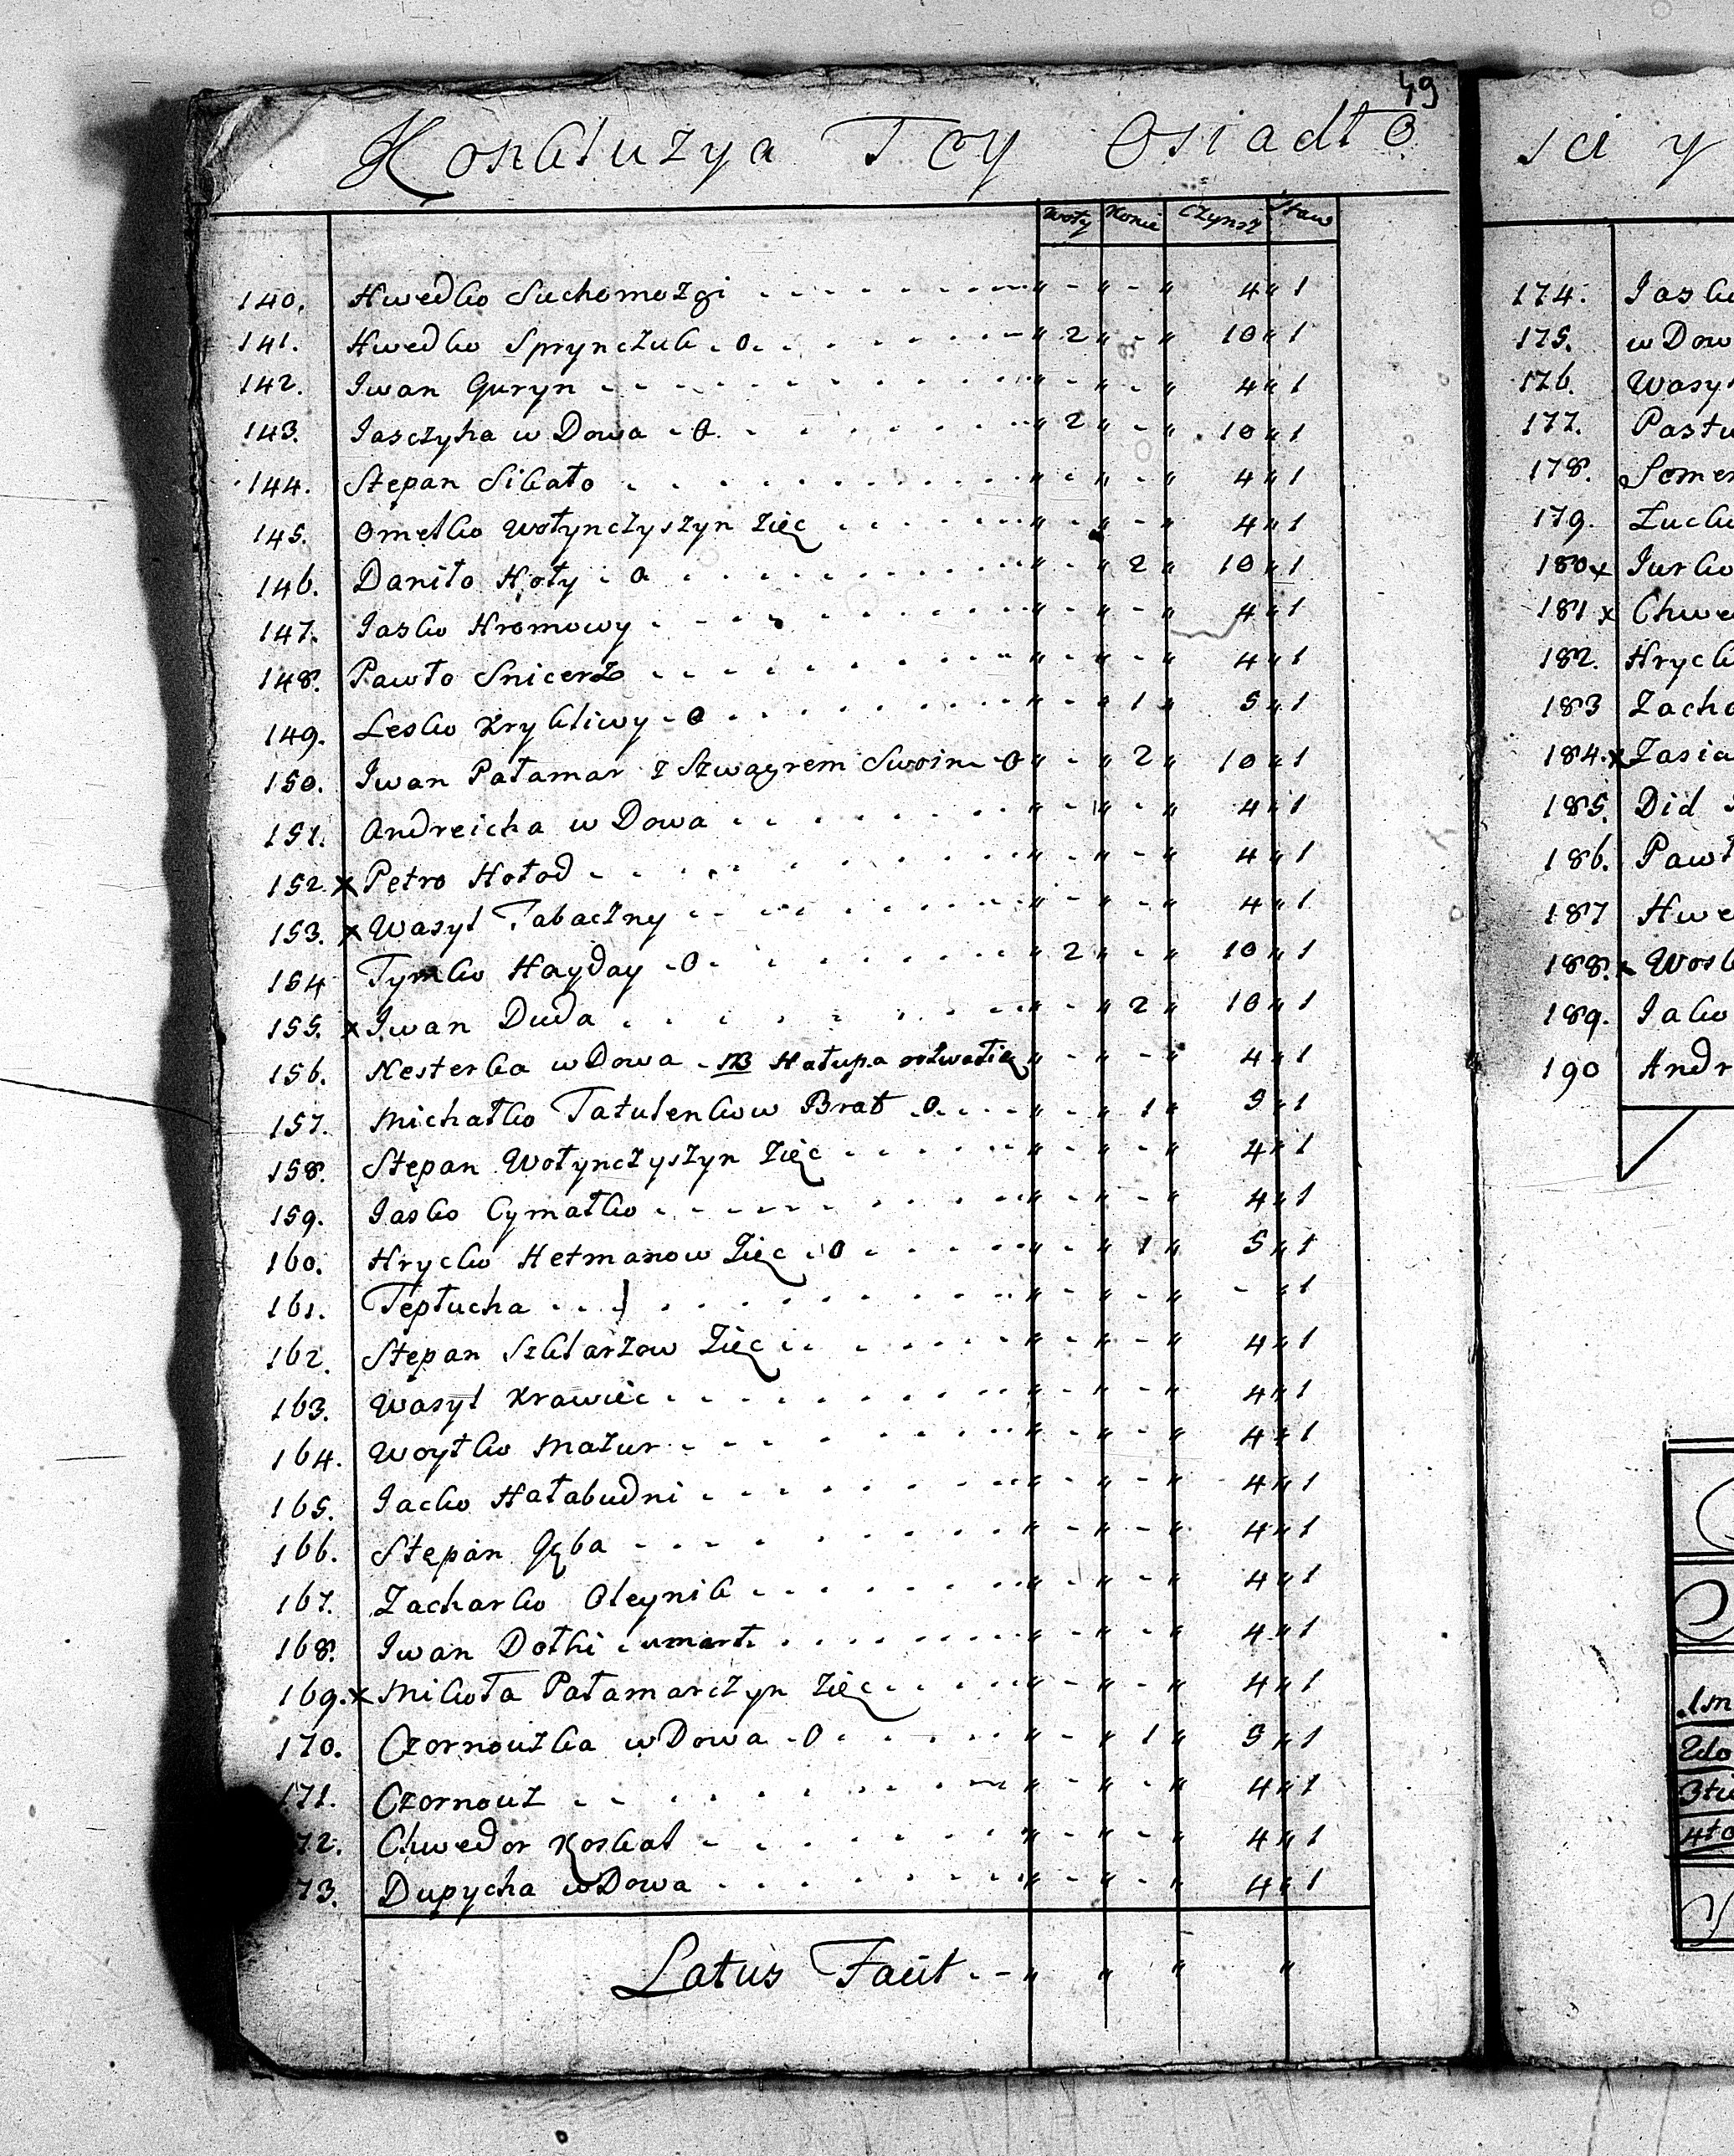 49
Konkluzya Tey Osiadło
Woły Konie Czynsz Staw
140. Hwedko Suchomozgi - - - - - - - - " - " - " 4 " 1
141. Hwedko Sprynczuk . o . . . . . . . " 2 " - " 10 " 1
142. Iwan Guryn - - - - - - - - " - " - " 4 " 1
143. Jasczyha w Dowa - o . . . . . . " 2 " - " 10 " 1
144. Stepan Sikało . . . . . . . . " - " - " 4 " 1
145. Omelko Wołynczyszyn Zięc . . . . . . " - " - " 4 " 1
146. Daniło Hoły . o . . . . . . . . " - " 2 " 10 " 1
147. Jasko Hromowy . - - . . . . . " - " - " 4 " 1
148. Pawło Snicerz . . . . . . . . " - " - " 4 " 1
149. Lesko Krykliwy - o . . . . . . . " - " 1 " 5 " 1
150. Iwan Pałamar z Szwagrem Swoim - o " - " 2 " 10 " 1
151. Andreicha w Dowa . . . . . . . " - " - " 4 " 1
152. x Petro Hołod - . . . . . . . . " - " - " 4 " 1
153. x Wasyl Tabaczny . . . . . . . . " - " - " 4 " 1
154 Tymko Hayday - o . . . . . . . " 2 " - " 10 " 1
155. x Iwan Duda . . . . . . . . " - " 2 " 10 " 1
156. Nesterka w Dowa - NB Hałupa " - " - " 4 " 1
157. Michałko Tatulenkow Brat . o . . . . " - " 1 " 5 " 1
158. Stepan Wołynczyszyn Zięc . . . . . . " - " - " 4 " 1
159. Jasko Cymałko . . - - - - . . . . " - " - " 4 " 1
160. Hrycko Hetmanow Zięc . o . . . . . " - " 1 " 5 " 1
161. Tepłucha . . . . . . . . . . " - " - " - " 1
162. Stepan Szklarzow Zięc . . . . . . . " - " - " 4 " 1
163. Wasyl Krawiec . . . . . . . . . " - " - " 4 " 1
164. Woytko Mazur . . . . . . . . " - " - " 4 " 1
165. Jacko Hałabudni . . . . . . . . " - " - " 4 " 1
166. Stepan Gęba - . . . . . . . . " - " - " 4 " 1
167. Zacharko Oleynik - . . . . . . . " - " - " 4 " 1
168. Iwan Dołhi . umarł . . . . . . . " - " - " 4 " 1
169. x Mikoła Pałamarczyn Zięc . . . . . " - " - " 4 " 1
170. Czornouzka w Dowa - o . . . . . " - " 1 " 5 " 1
171. Czornouz . . . . . . . . " - " - " 4 " 1
72. Chwedor Koskal - . . . . . . . " - " - " 4 " 1
73. Dupycha w Dowa . . . . . . . . " - " - " 4 " 1
Latus Facit . - " " " "
sci y
174.
175. w Dow
176. Wasy
177.
178.
179.
180 x Jurko
181 x Chwe
182. Hryck
183 Zacha
184. x Zasia
185. Did
186. Paw
187 Hwe
188. x
189. Jako
190 Andr
2do
3tio
4to